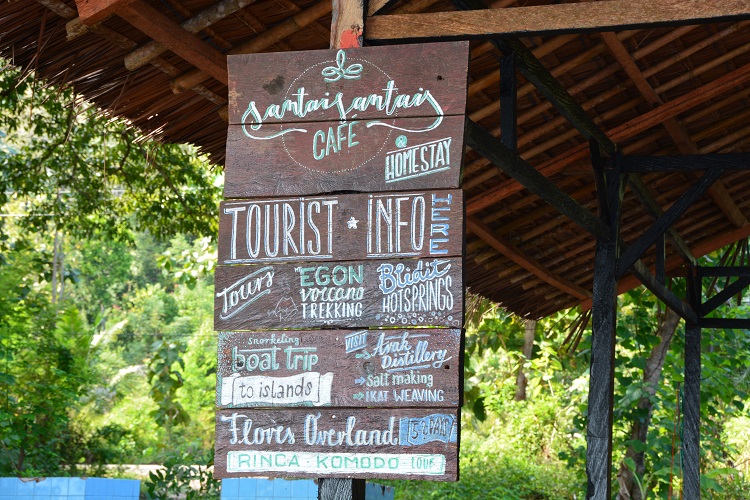 santai santai
CAFÉ
& HOMESTAY
TOURIST INFO HERE
TOURS EGON volcano TREKKING
Blidit HOTSPRINGS
Snorkeling
boat trip
to islands
VISIT Arak Distillery
Salt making
IKAT WEAVING
Flores Overland
RINCA - KOMODO -